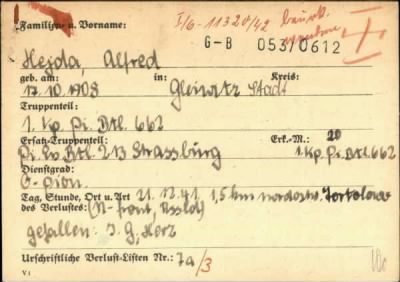 Familien- u. Vorname: I/6-11320/42
G-B 053/0612
Hejda, Alfred
geb. am: in: Kreis:
17.10.1908 Gleiwitz Stadt
Truppenteil:
1. Kp. Pi. Btl. 662
Ersatz-Truppenteil: Erk.-M.: 20
Pi. Ers. Btl. 213 Strassburg 1. Kp. Pi. Btl. 662
Dienstgrad:
O-Pion.
Tag, Stunde, Ort u. Art 21.12.41. 1,5 km nordostw.
des Verlustes: (N-front, Rssld)
gefallen: I. G. Herz
Urschriftliche Verlust-Listen Nr.: 7a/3
V 1